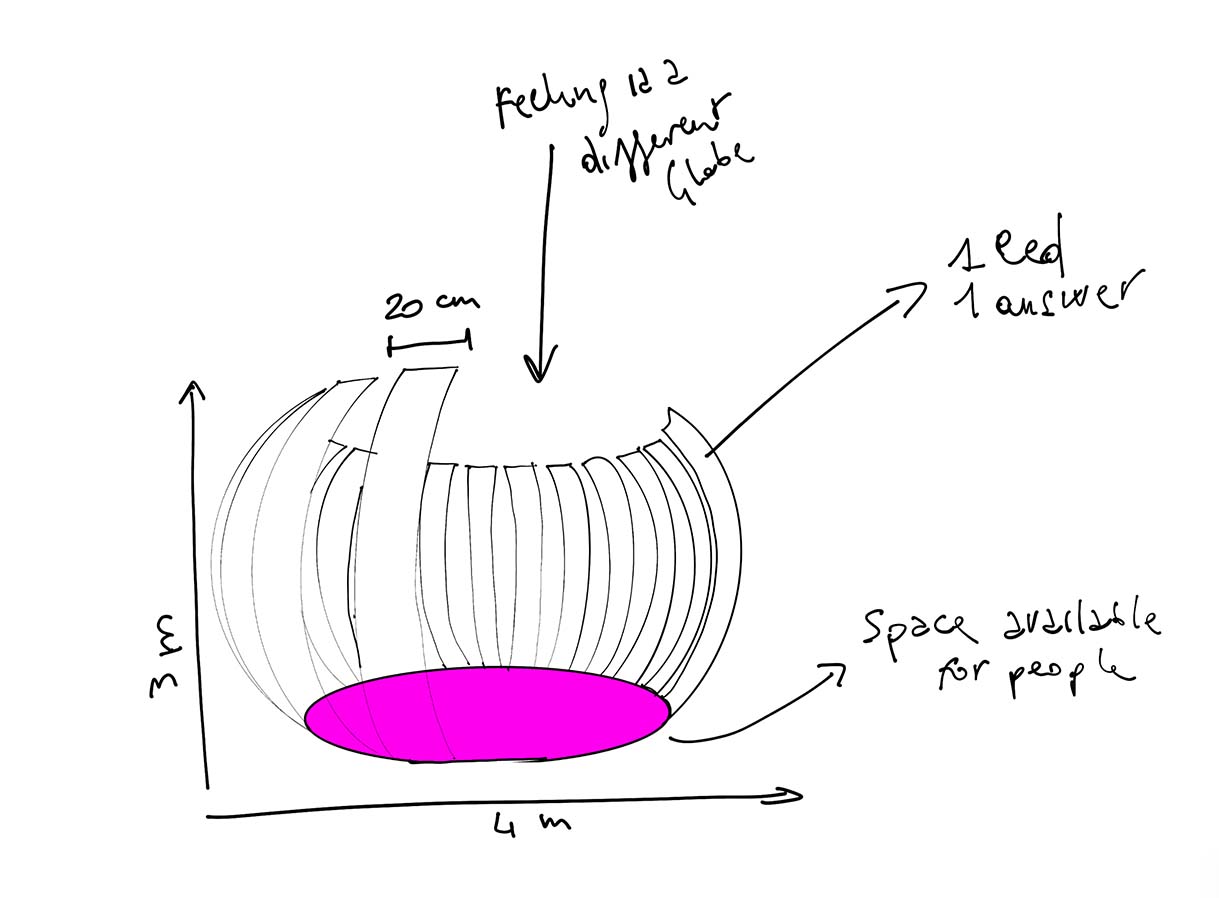 Feeling is a
different
Globe
20 cm
1 led
1 answer
3 m
Space available
for people
4 m